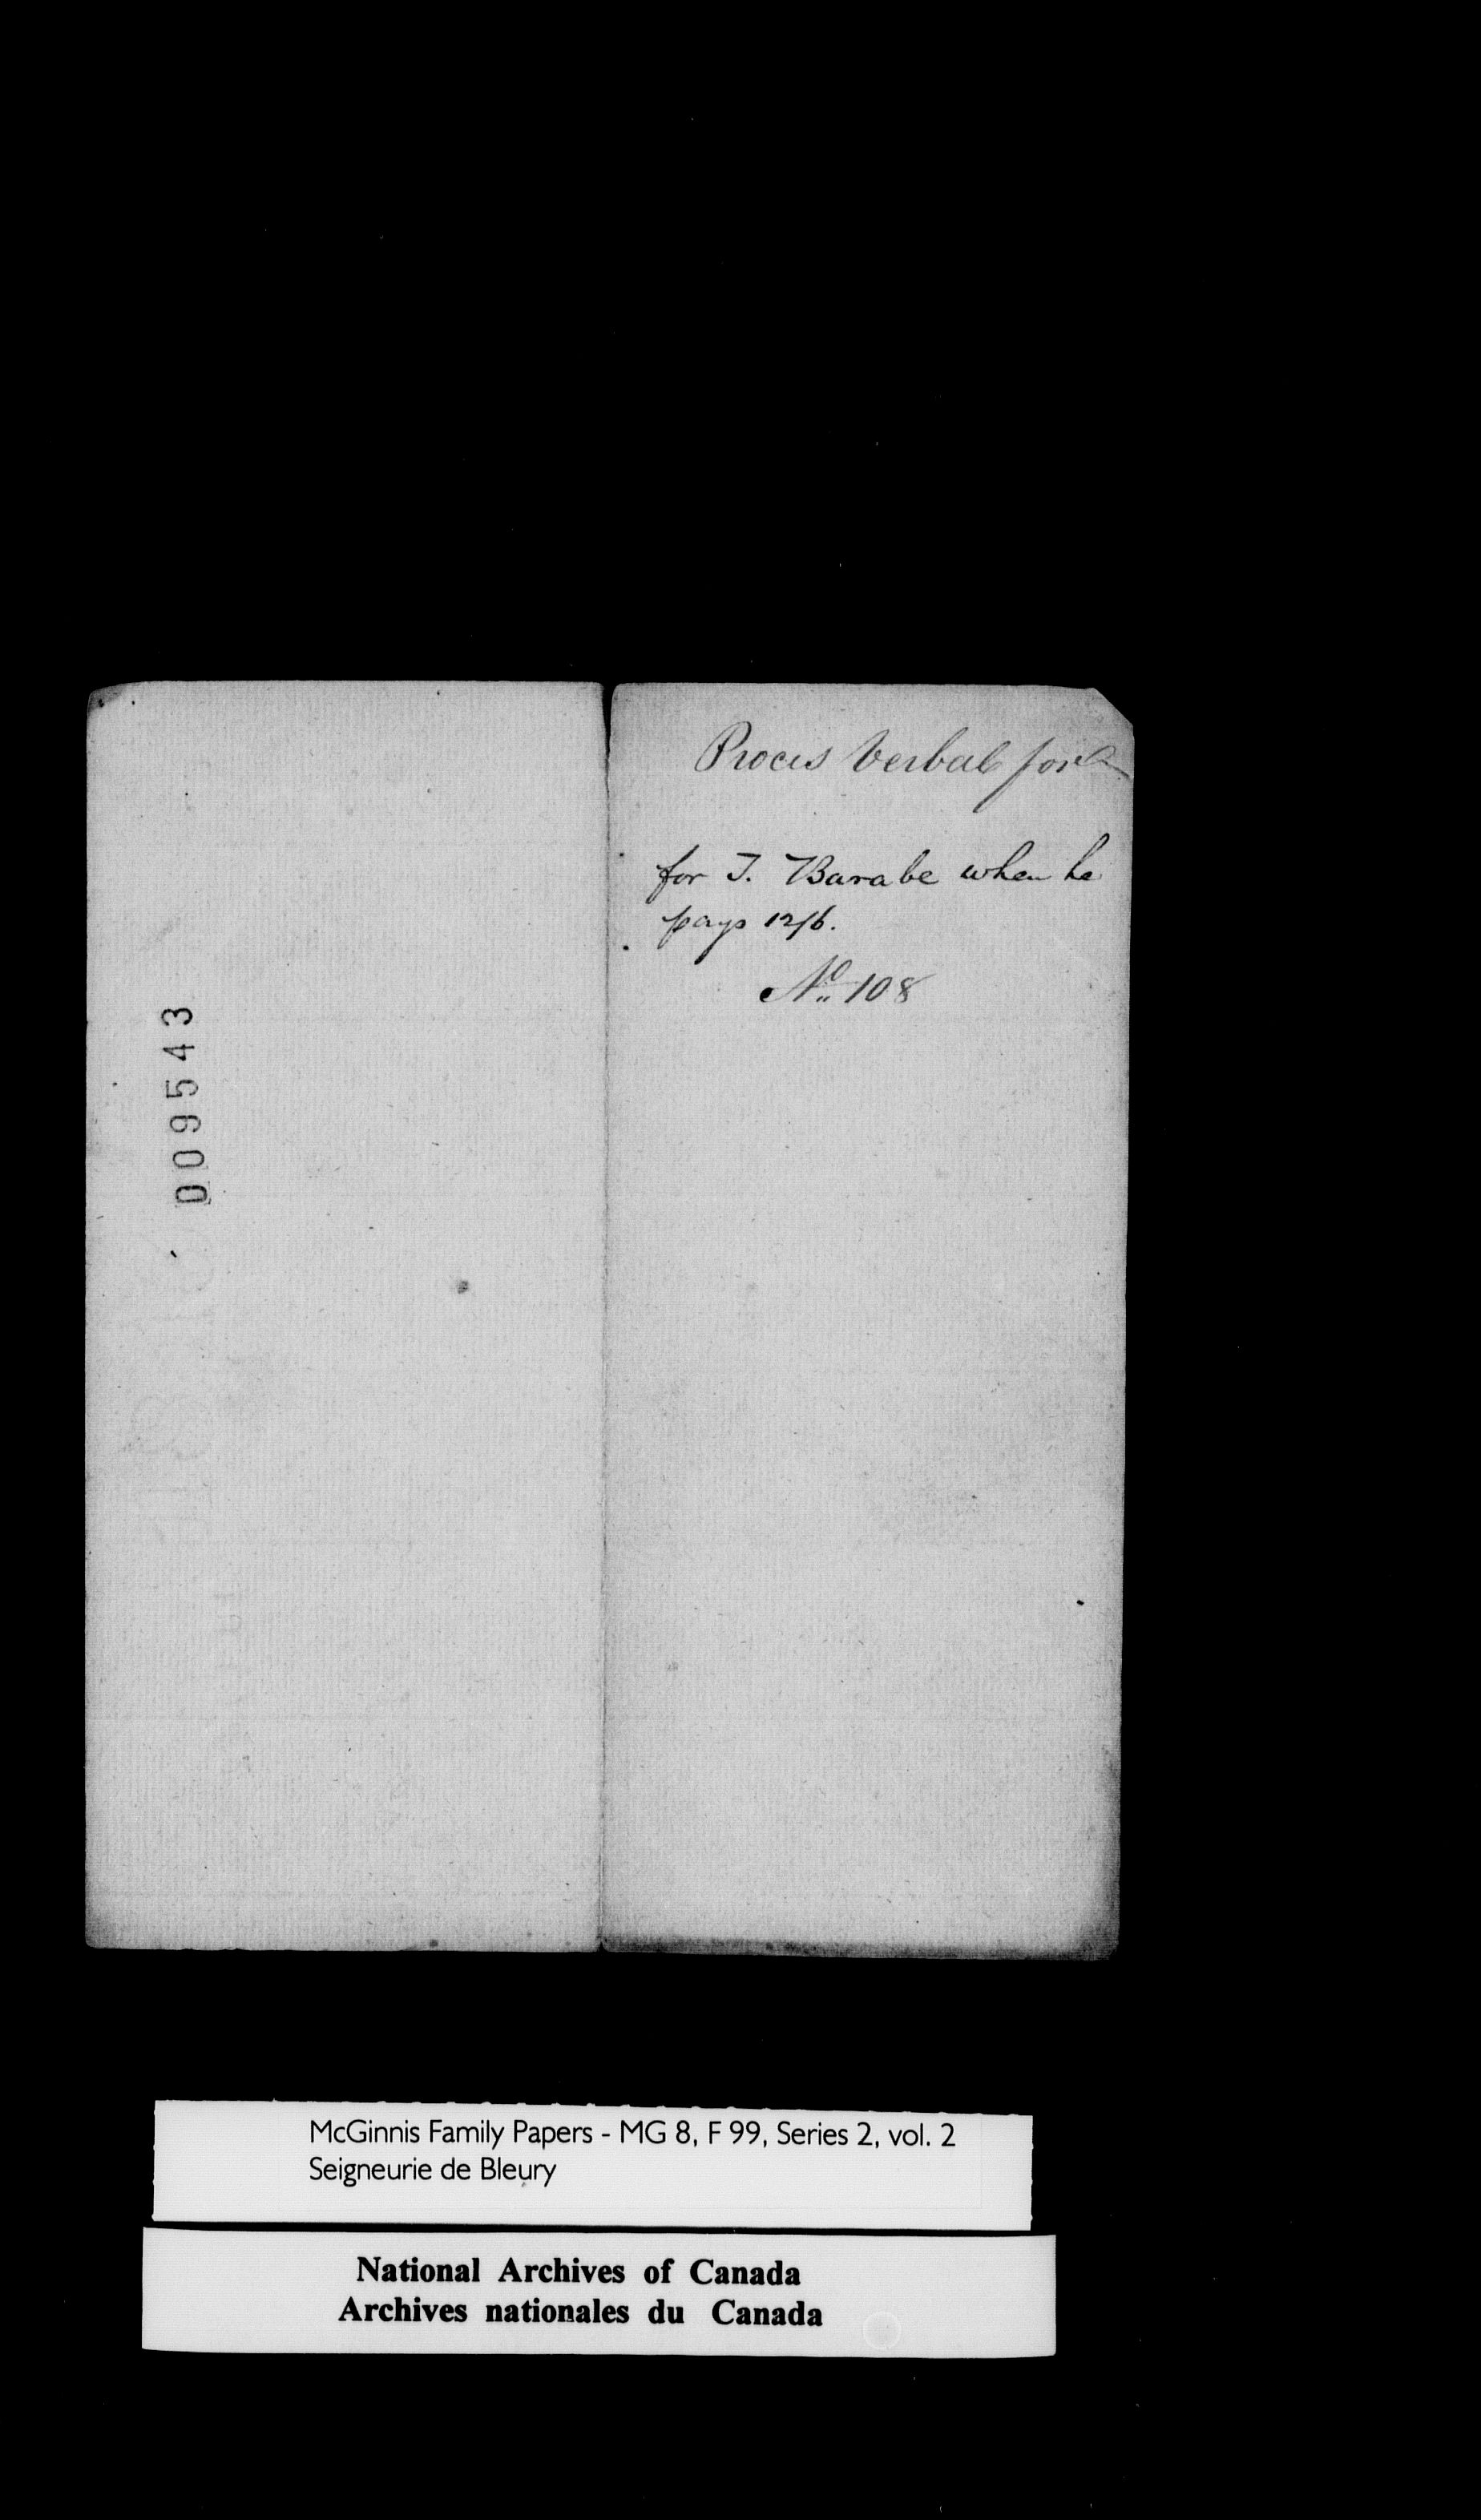 009543
Proces Verbal for
for J. Barabe when he
pays 12/6.
No 108
McGinnis Family Papers - MG 8, F 99, Series 2, vol. 2
Seigneurie de Bleury
National Archives of Canada
Archives nationales du Canada